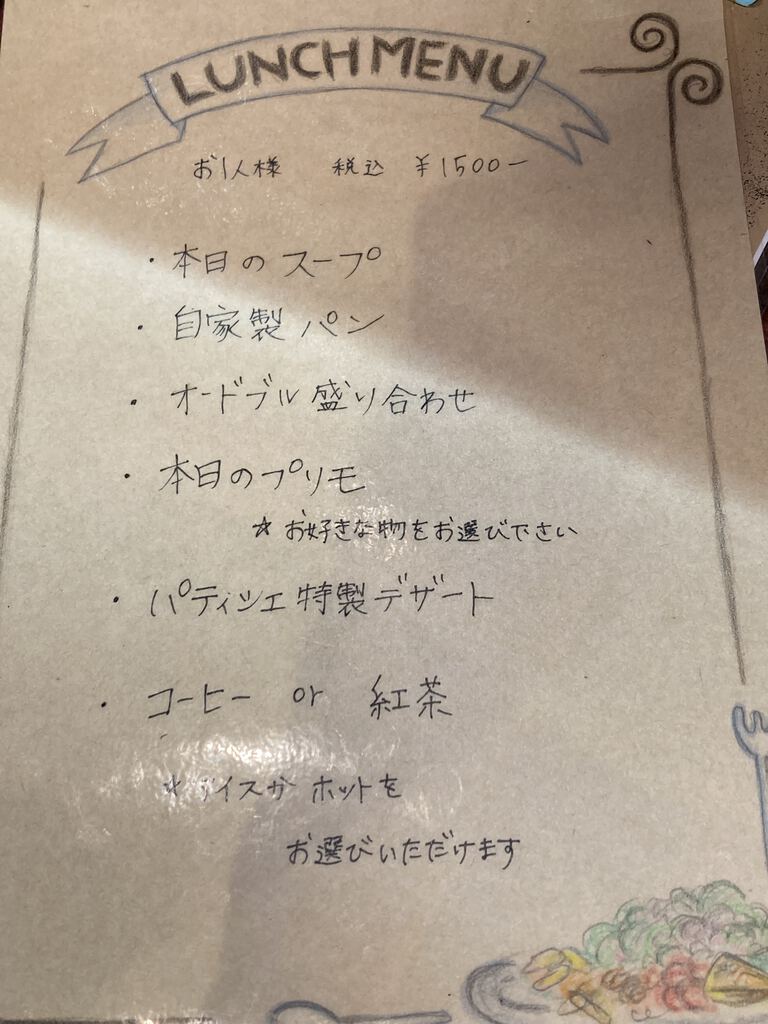 LUNCH MENU
お1人様 税込 ¥1500-
・本日のスープ
・自家製パン
・オードブル盛り合わせ
・本日のプリモ
☆お好きな物をお選び下さい
・パティシエ特製デザート
・コーヒー or 紅茶
☆アイスかホットを
お選びいただけます